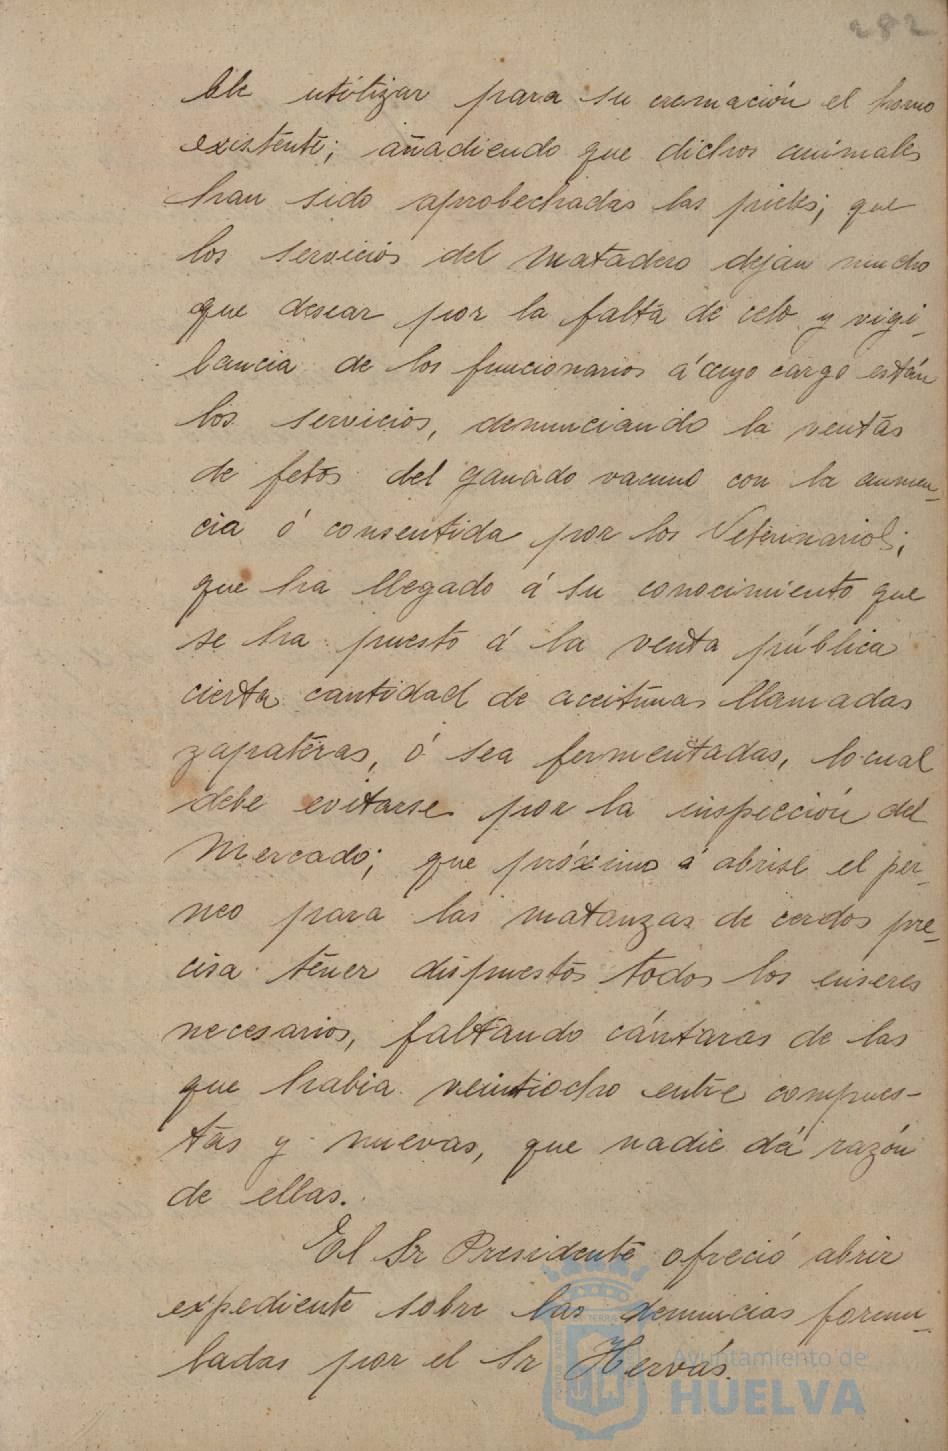 282
ble utilizar para su cremación el horno
existente; añadiendo que dichos animales
han sido aprobechadas las pieles; que
los servicios del Matadero dejan mucho
que desear por la falta de celo y vigi-
lancia de los funcionarios á cuyo cargo están
los servicios, denunciando la ventas
de fetos del ganado vacuno con la anuen-
cia ó consentida por los Veterinarios;
que ha llegado á su conocimiento que
se ha puesto á la venta pública
cierta cantidad de aceitunas llamadas
zapateras, ó sea fermentadas, lo cual
debe evitarse por la inspección del
Mercado; que próximo á abrise el per-
neo para las matanzas de cerdos pre-
cisa tener dispuestos todos los enseres
necesarios, faltando cántaras de las
que habia veintiocho entre compues-
tas y nuevas, que nadie dá razón
de ellas.
El Sr Presidente ofreció abrir
expediente sobre las denuncias formu-
ladas por el Sr Hervás.
Ayuntamiento de
HUELVA